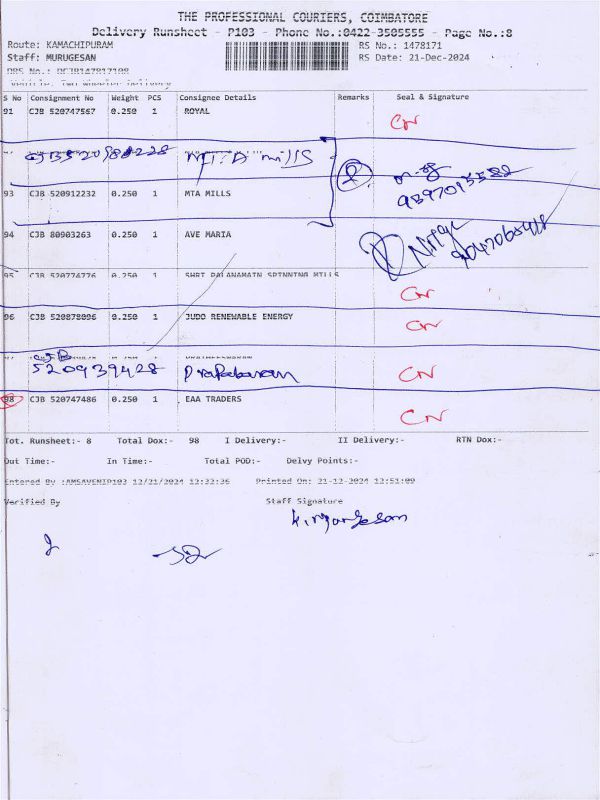 THE PROFESSIONAL COURIERS, COIMBATORE
Delivery Runsheet - P103 - Phone No.:0422-3505555 - Page No.:8
Route: KAMACHIPURAM RS No.: 1478171
Staff: MURUGESAN RS Date: 21-Dec-2024
DRS No.: DCJB147817108
Vehicle: Two Wheeler Delivery
S No Consignment No Weight PCS Consignee Details Remarks Seal & Signature
91 CJB 520747567 0.250 1 ROYAL CN
MTA mills
93 CJB 520912232 0.250 1 MTA MILLS
94 CJB 80903263 0.250 1 AVE MARIA
95 CJB 520774776 0.250 1 SHRI PALANAMAIN SPINNING MILLS CN
96 CJB 520878096 0.250 1 JUDO RENEWABLE ENERGY CN
CJB
520939428 CN
98 CJB 520747486 0.250 1 EAA TRADERS CN
Tot. Runsheet:- 8 Total Dox:- 98 I Delivery:- II Delivery:- RTN Dox:-
Out Time:- In Time:- Total POD:- Delvy Points:-
Entered By :AMSAVENIP103 12/21/2024 12:32:36 Printed On: 21-12-2024 12:51:09
Verified By Staff Signature